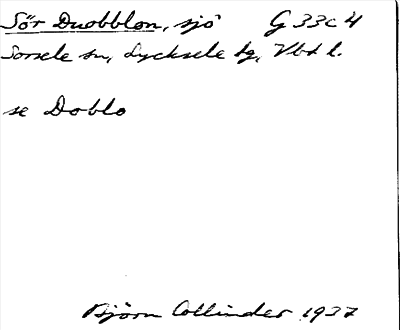 Sör Duobblon, sjö G 33c 4
Sorsele sn, Lycksele tg, Vbt l.
se Doblo
Björn Collinder 1937